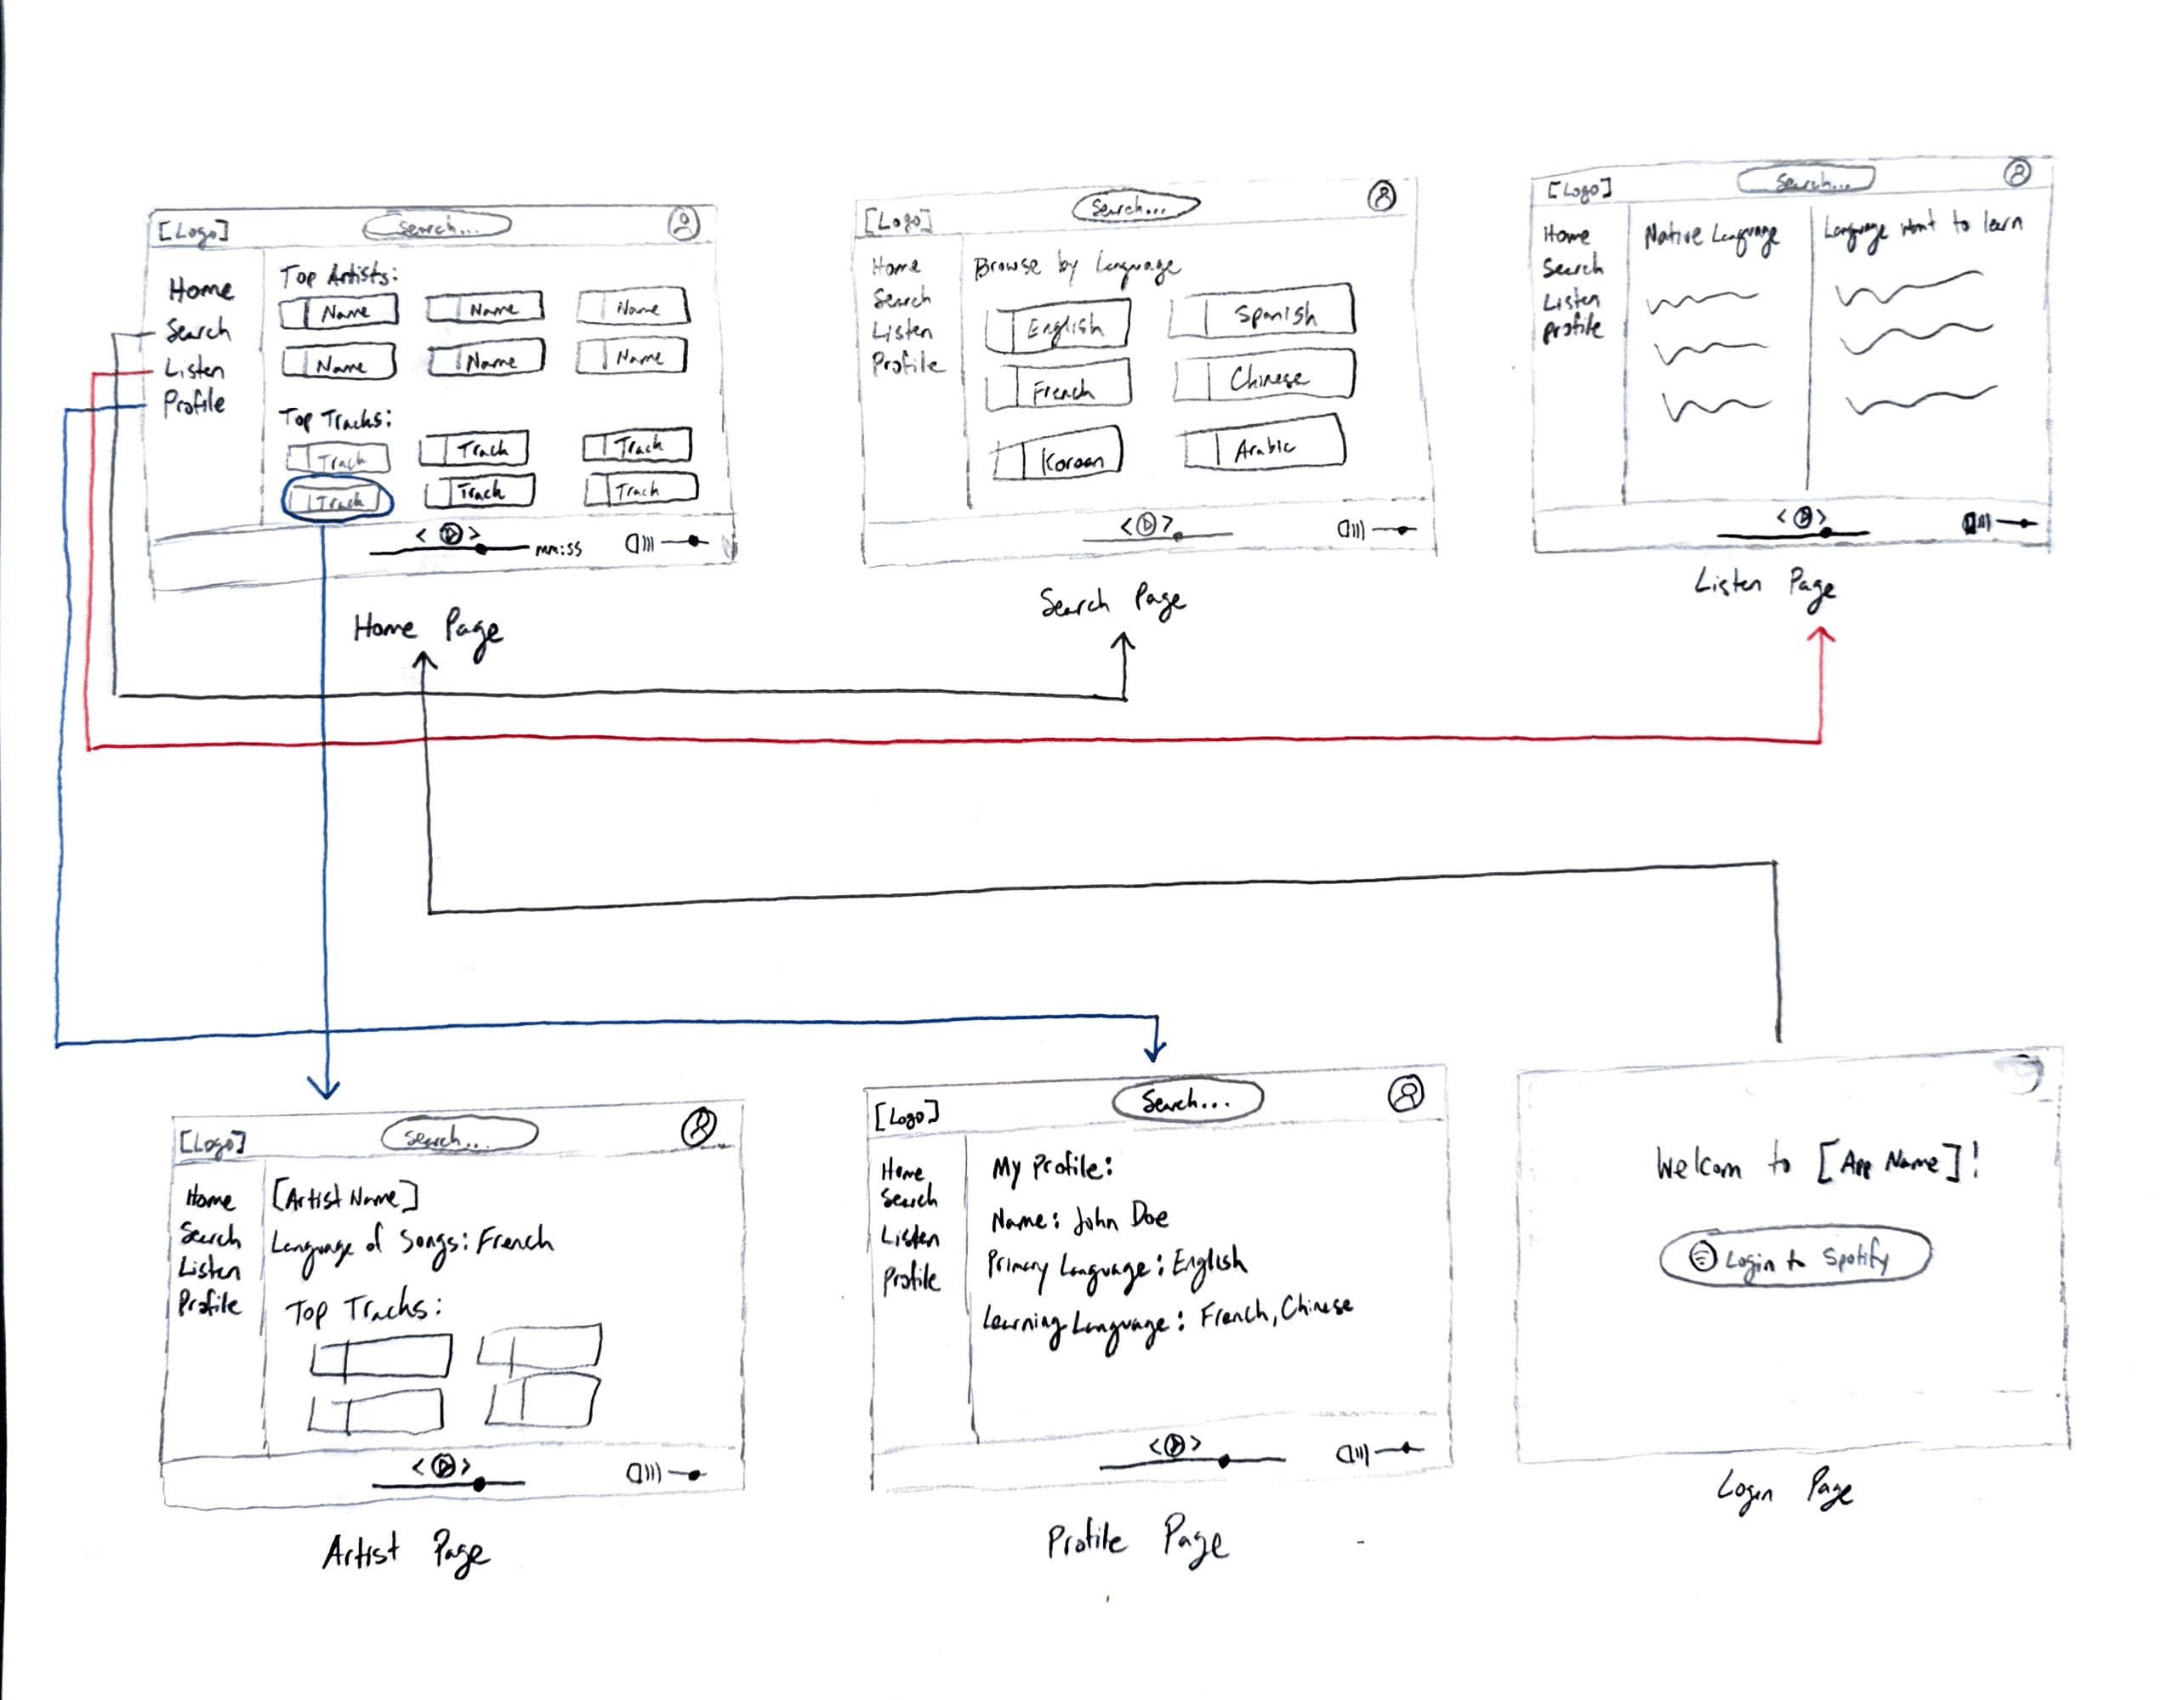 [Logo]
Search...
Home
Search
Listen
Profile
Top Artists:
Name Name Name
Name Name Name
Top Tracks:
Track Track Track
Track Track Track
mm:ss
Home Page
[Logo]
Search...
Home
Search
Listen
Profile
Browse by Language
English Spanish
French Chinese
Korean Arabic
Search Page
[Logo]
Search...
Home
Search
Listen
Profile
Native Language
Language Want to learn
Listen Page
[Logo]
Search...
Home
Search
Listen
Profile
[Artist Name]
Language of Songs: French
Top Tracks:
Artist Page
[Logo]
Search...
Home
Search
Listen
Profile
My Profile:
Name: John Doe
Primary Language: English
Learning Language: French, Chinese
Profile Page
Welcom to [App Name]!
Login to Spotify
Login Page